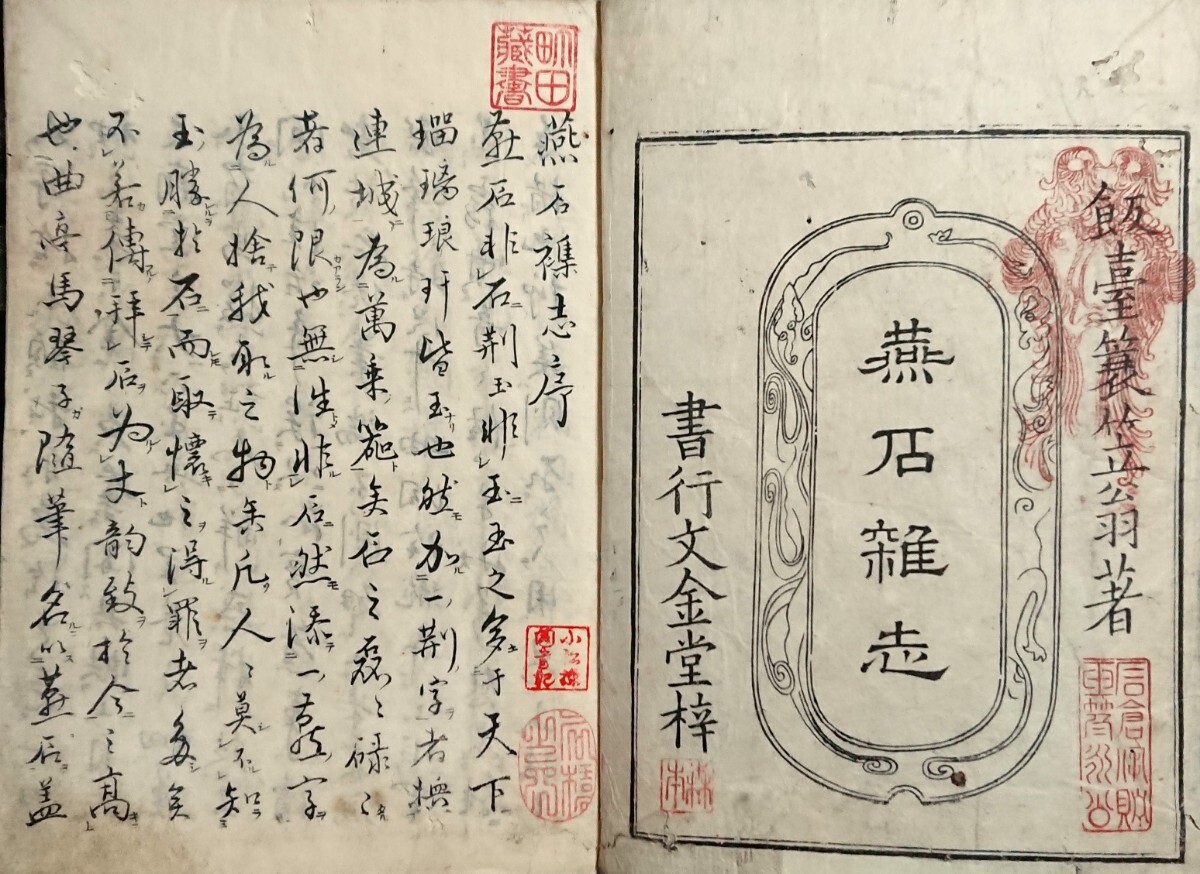 飯臺簑笠翁著
燕石雜志
書行文金堂梓
燕石襍志序
燕石非石荆玉非玉玉之多于天下
瑠璃琅玕皆玉也然加一荆字者
連城為萬乗矣石之磊〻碌〻
者何限也無往非石然添一燕字
為人捨我取之物矣凡人〻莫不知
玉勝於石而取懷之得罪者多矣
不若傳拜石為丈韵致於今之高
也曲亭馬琴子隨筆名以燕石蓋